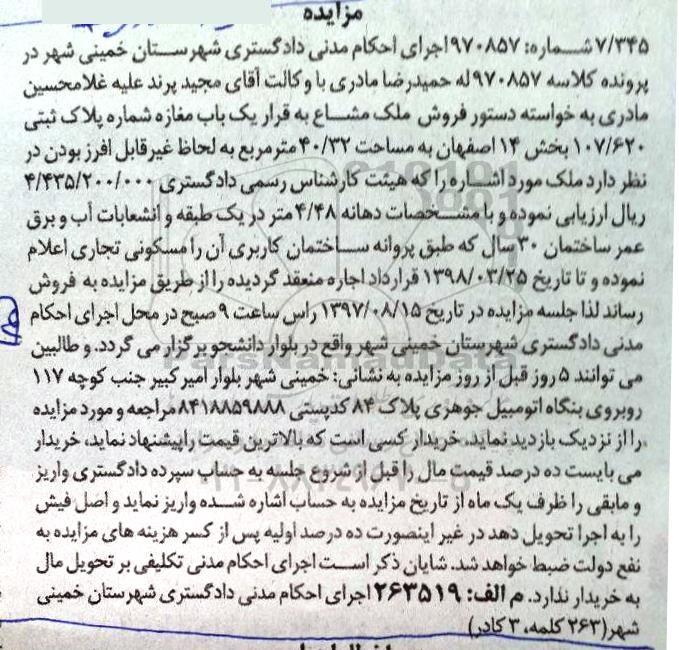 مزایده
۷/۳۴۵ شماره: ۹۷۰۸۵۷ اجرای احکام مدنی دادگستری شهرستان خمینی شهر در
پرونده کلاسه ۹۷۰۸۵۷ له حمیدرضا مادری با وکالت آقای مجید پرند علیه غلامحسین
مادری به خواسته دستور فروش ملک مشاع به قرار یک باب مغازه شماره پلاک ثبتی
۱۰۷/۶۲۰ بخش ۱۴ اصفهان به مساحت ۴۰/۳۲ مترمربع به لحاظ غیرقابل افرز بودن در
نظر دارد ملک مورد اشاره را که هیئت کارشناس رسمی دادگستری ۴/۴۳۵/۲۰۰/۰۰۰
ریال ارزیابی نموده و با مشخصات دهانه ۴/۴۸ متر در یک طبقه و انشعابات آب و برق
عمر ساختمان ۳۰ سال که طبق پروانه ساختمان کاربری آن را مسکونی تجاری اعلام
نموده و تا تاریخ ۱۳۹۸/۰۳/۲۵ قرارداد اجاره منعقد گردیده را از طریق مزایده به فروش
رساند لذا جلسه مزایده در تاریخ ۱۳۹۷/۰۸/۱۵ راس ساعت ۹ صبح در محل اجرای احکام
مدنی دادگستری شهرستان خمینی شهر واقع در بلوار دانشجو برگزار می گردد. و طالبین
می توانند ۵ روز قبل از روز مزایده به نشانی: خمینی شهر بلوار امیر کبیر جنب کوچه ۱۱۷
روبروی بنگاه اتومبیل جوهری پلاک ۸۴ کدپستی ۸۴۱۸۸۵۹۸۸۸ مراجعه و مورد مزایده
را از نزدیک بازدید نماید. خریدار کسی است که بالاترین قیمت را پیشنهاد نماید، خریدار
می بایست ده درصد قیمت مال را قبل از شروع جلسه به حساب سپرده دادگستری واریز
و مابقی را ظرف یک ماه از تاریخ مزایده به حساب اشاره شده واریز نماید و اصل فیش
را به اجرا تحویل دهد در غیر اینصورت ده درصد اولیه پس از کسر هزینه های مزایده به
نفع دولت ضبط خواهد شد. شایان ذکر است اجرای احکام مدنی تکلیفی بر تحویل مال
به خریدار ندارد. م الف: ۲۶۳۵۱۹ اجرای احکام مدنی دادگستری شهرستان خمینی
شهر (۲۶۳ کلمه، ۳ کادر)